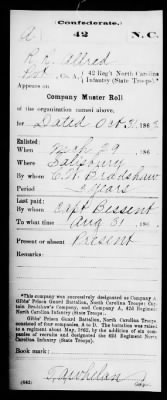 (Confederate.)
A 42 N.C.
R. R. Allred
Pvt, Co. A, 42 Reg't North Carolina Infantry (State Troops).*
Appears on
Company Muster Roll
of the organization named above,
for Dated Oct 31, 186
Enlisted:
When 29, 186
Where Salisbury
By whom Bradshaw
Period years
Last paid:
By whom Capt Bessent
To what time Aug 31, 186
Present or absent Present
Remarks:
*This company was successively designated as Company A, Gibbs' Prison Guard Battalion, North Carolina Troops; Captain Bradshaw's Company, and Company A, 42d Regiment North Carolina Infantry (State Troops).
Gibbs' Prison Guard Battalion, North Carolina Troops, consisted of four companies, A to D. The battalion was raised to a regiment about May, 1862, by the addition of six companies of recruits and designated the 42d Regiment North Carolina Infantry (State Troops).
Book mark:
(642)
Copyist.